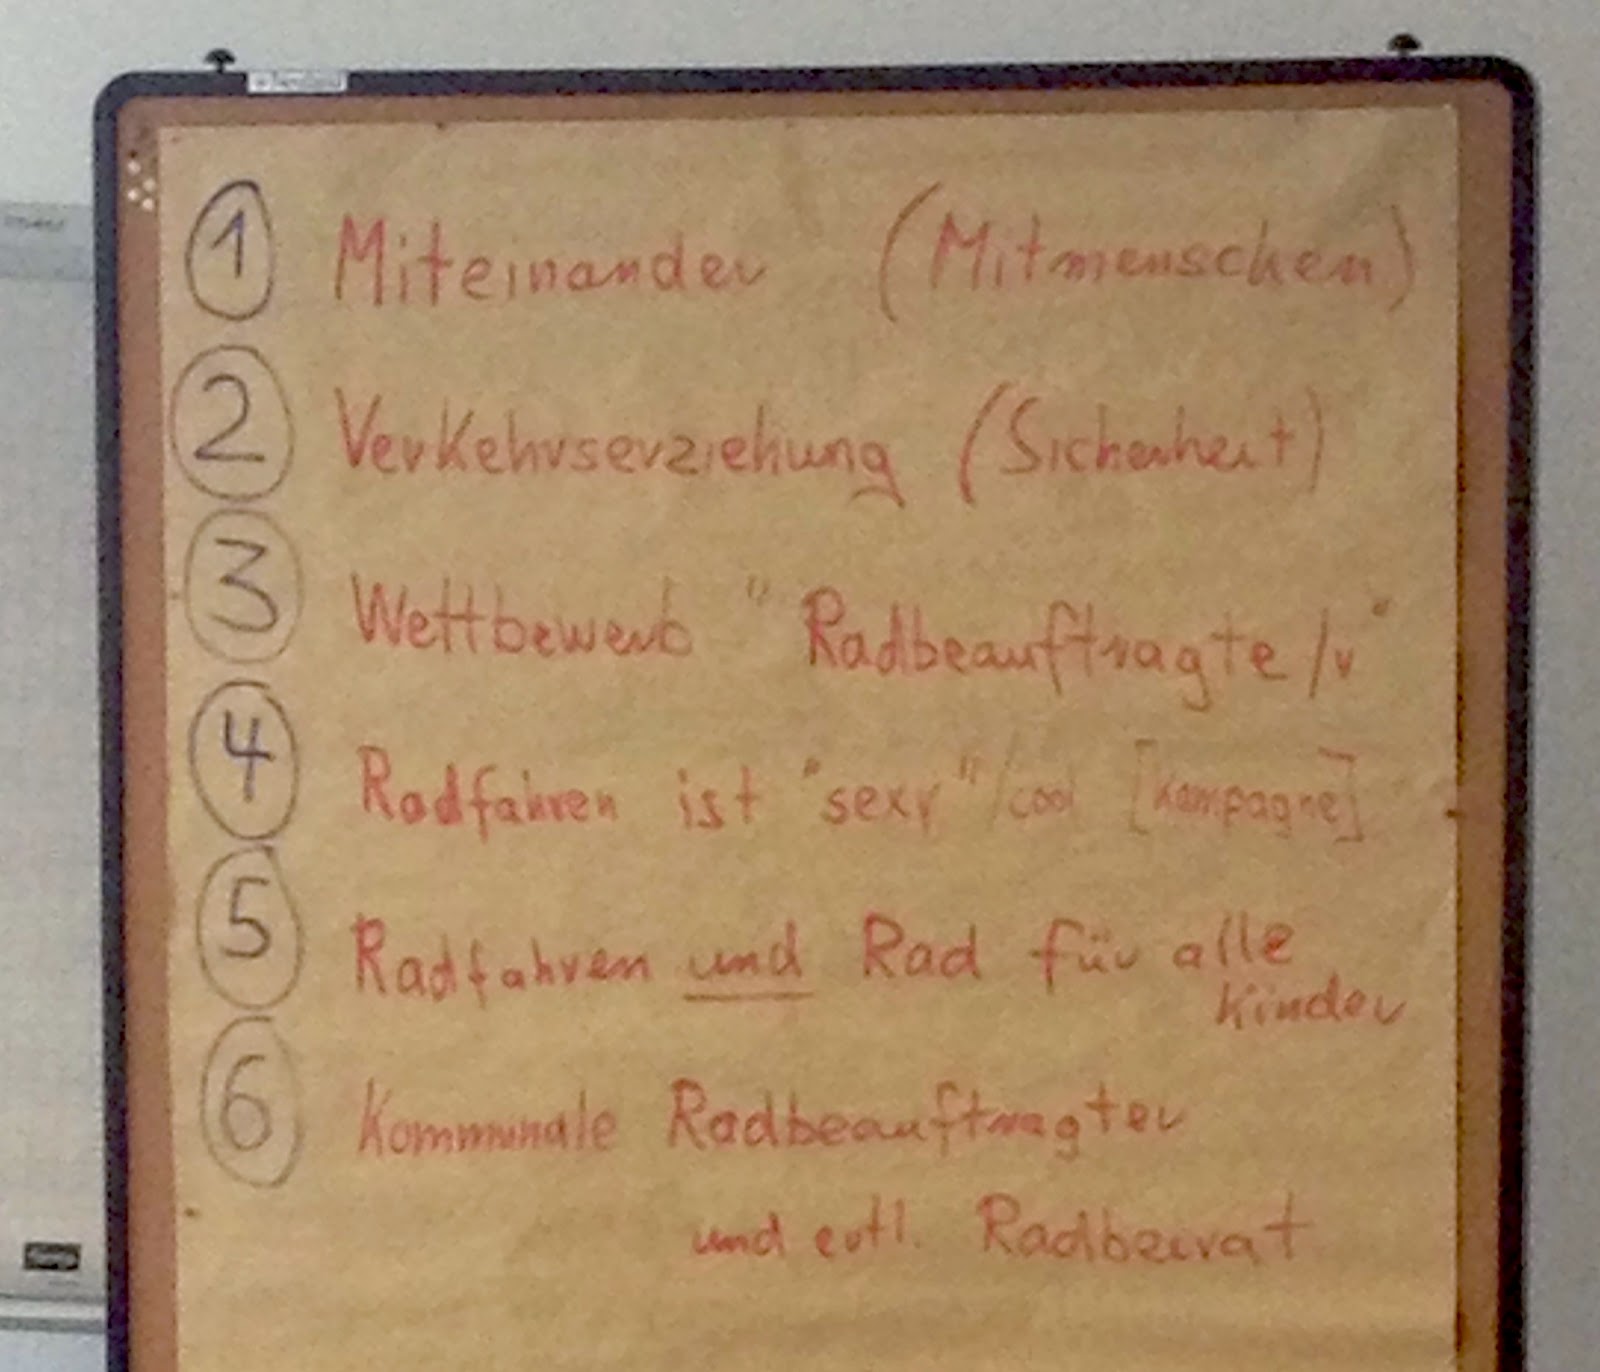 1 Miteinander (Mitmenschen)
2 Verkehrserziehung (Sicherheit)
3 Wettbewerb "Radbeauftragte/r"
4 Radfahren ist "sexy"/cool [Kampagne]
5 Radfahren und Rad für alle
Kinder
6 Kommunale Radbeauftragter
und evtl. Radbeirat